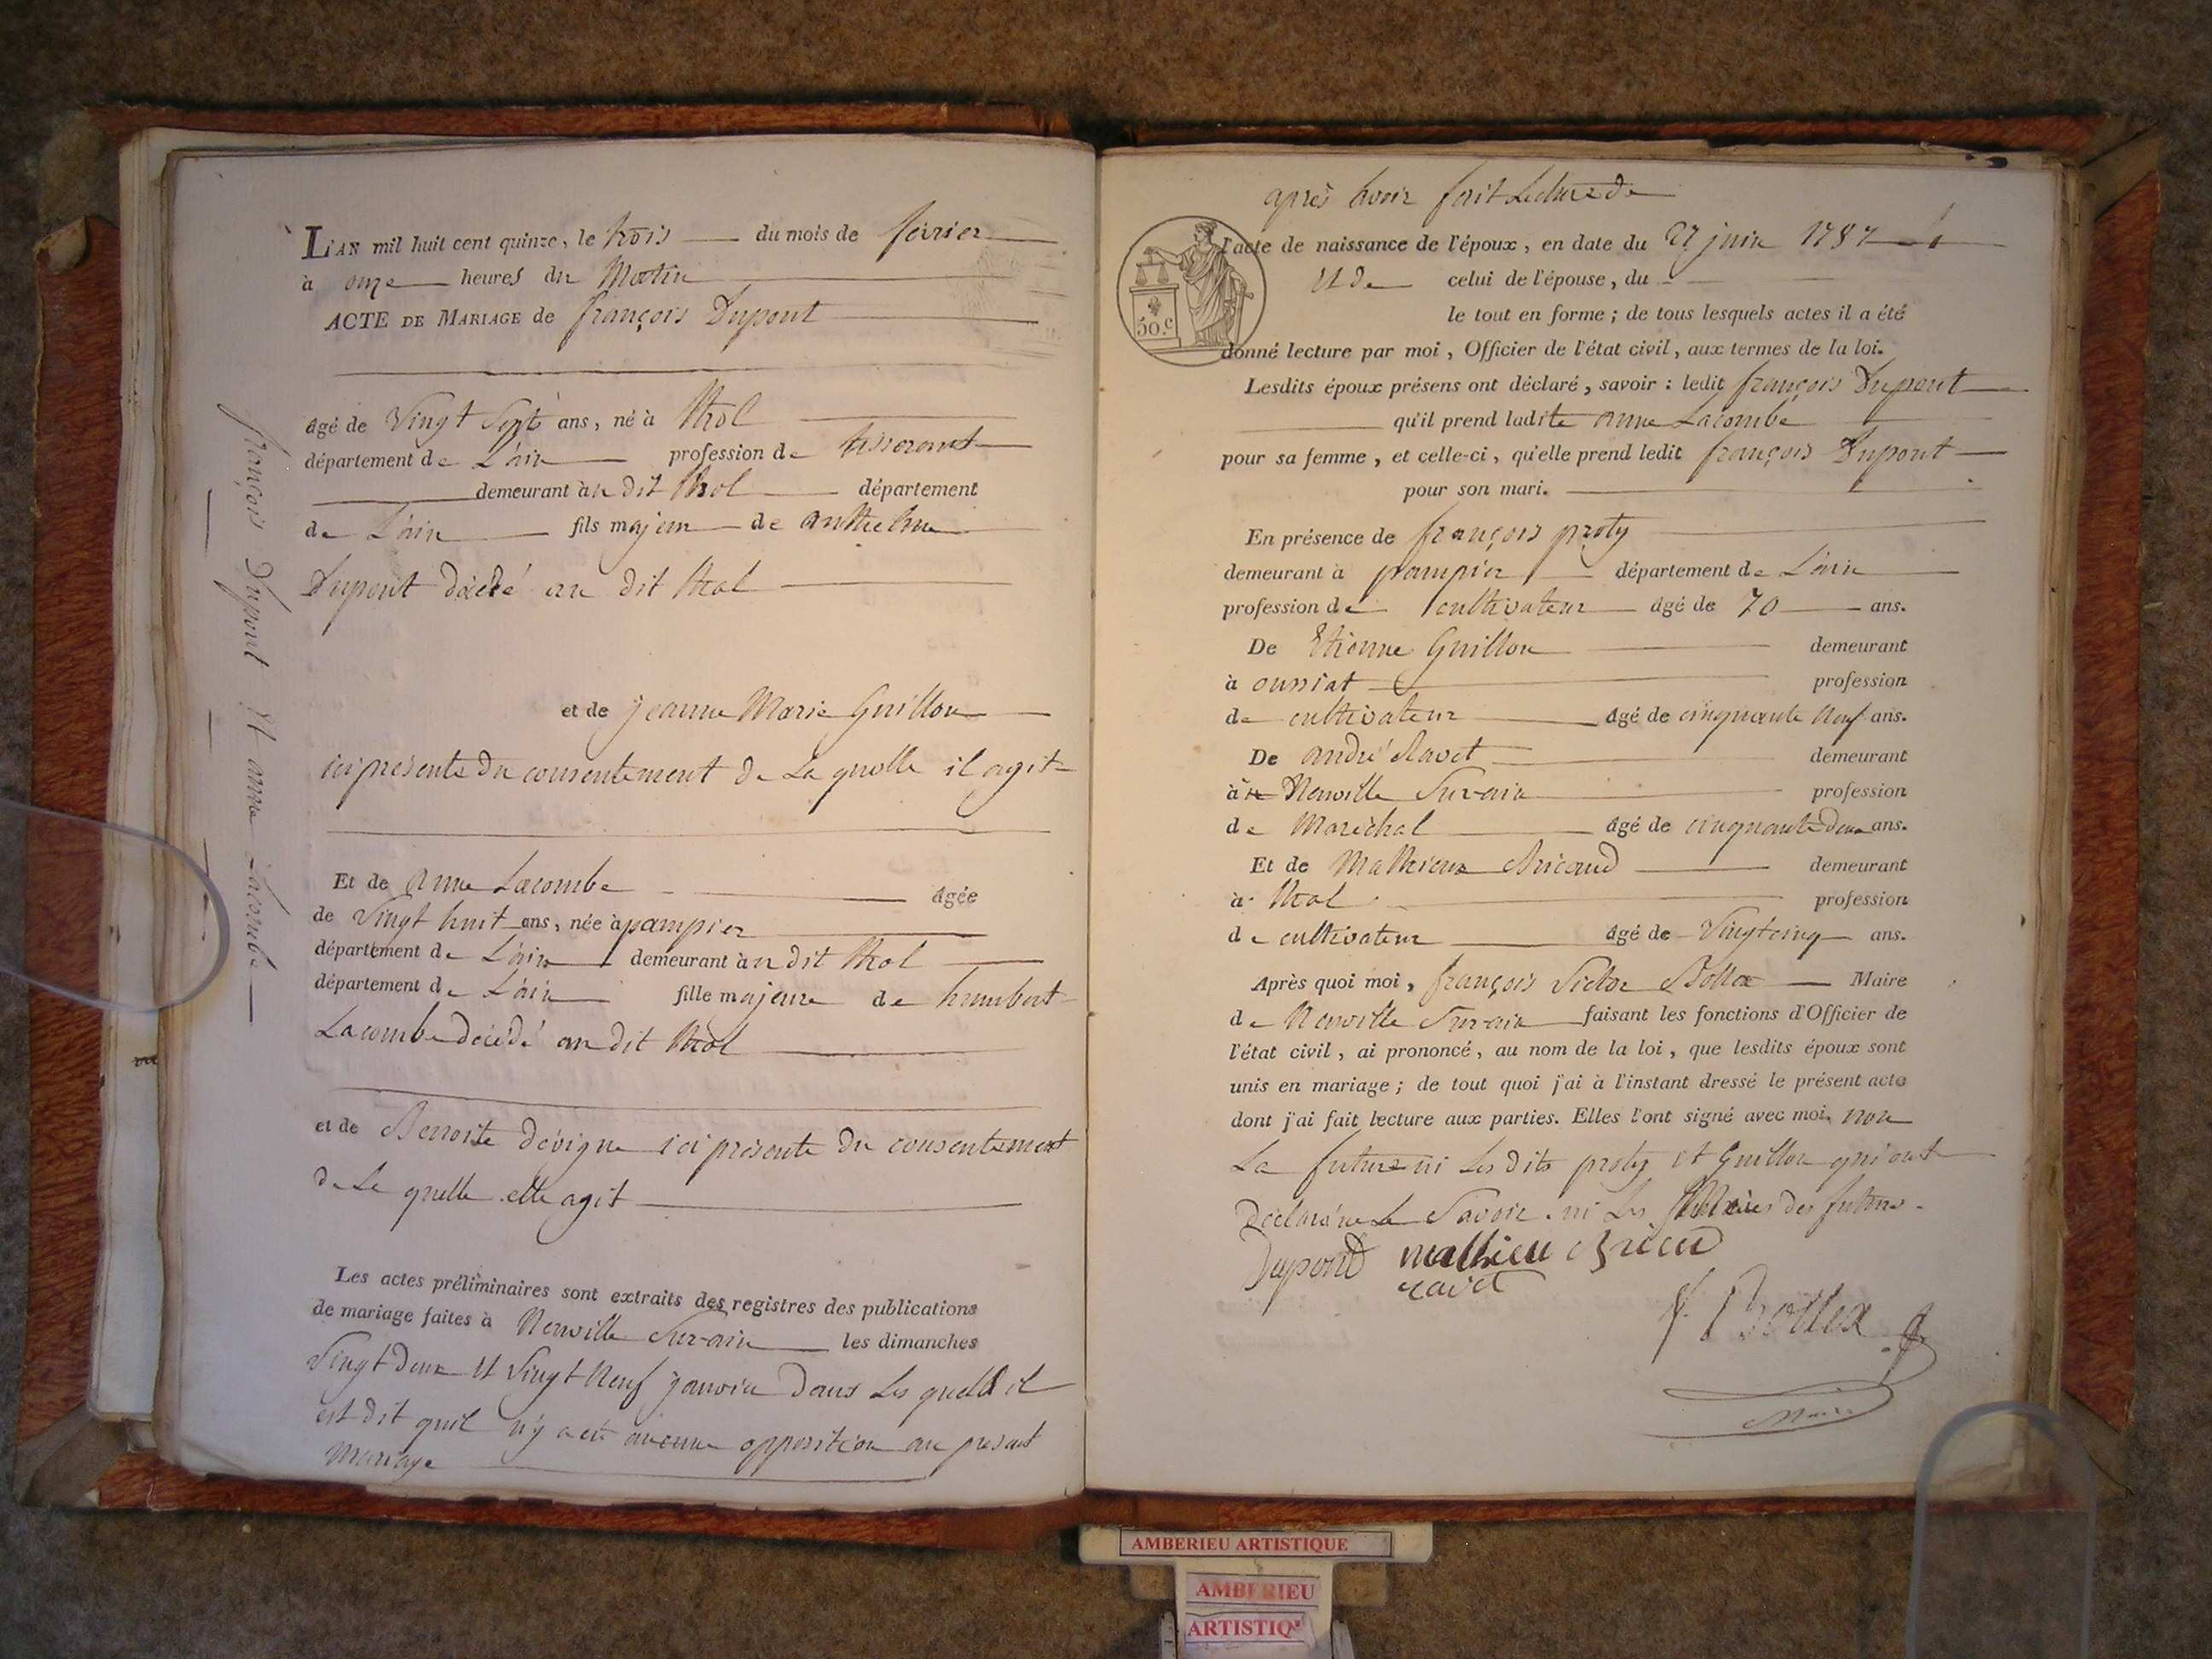 L'AN mil huit cent quinze, le trois du mois de février
à onze heures du Matin
ACTE DE MARIAGE de françois Dupont
âgé de Vingt Sept ans, né à thol
département de L'ain profession de tisserant
demeurant au dit thol département
de L'ain fils majeur de anthelme
Dupont décédé au dit thol
et de jeanne Marie Guillon
ici présente du consentement de La quelle il agit
Et de anne Lacombe agée
de Vingt huit ans, née à pampier
département de L'ain demeurant au dit thol
département de L'ain fille majeure de humbert
Lacombe décédé au dit thol
et de Benoite dévigne ici présente du consentement
de La quelle elle agit
Les actes préliminaires sont extraits des registres des publications
de mariage faites à Neuville Sur-ain les dimanches
Vingt Deux et Vingt Neuf janvier Dans Les quells il
est dit quil n'y a eu aucune opposition au present
Mariage
françois Dupont et anne Lacombe
après avoir fait Lecture de
l'acte de naissance de l'époux, en date du 27 juin 1787
et de celui de l'épouse, du
le tout en forme ; de tous lesquels actes il a été
donné lecture par moi, Officier de l'état civil, aux termes de la loi.
50.c
Lesdits époux présens ont déclaré, savoir : ledit françois Dupont
qu'il prend ladite anne Lacombe
pour sa femme, et celle-ci, qu'elle prend ledit françois Dupont
pour son mari.
En présence de françois proty
demeurant à pampier département de L'ain
profession de cultivateur âgé de 70 ans.
De Etienne Guillon demeurant
à oussiat profession
de cultivateur âgé de cinquante Neuf ans.
De andré Ravet demeurant
à Neuville Sur-ain profession
de Maréchal âgé de cinquante deux ans.
Et de Mathieux Bricaud demeurant
à thol profession
de cultivateur âgé de Vingt cinq ans.
Après quoi moi, françois Victor Bollex Maire
de Neuville Sur-ain faisant les fonctions d'Officier de
l'état civil, ai prononcé, au nom de la loi, que lesdits époux sont
unis en mariage ; de tout quoi j'ai à l'instant dressé le présent acte
dont j'ai fait lecture aux parties. Elles l'ont signé avec moi. non
La future ni Les dits proty et Guillon qui ont
Déclaré ne Le Savoir. ni Les Mères des futurs.
Dupont mathieu Bricud
ravet
Bollex
Maire
AMBERIEU ARTISTIQUE
AMBERIEU
ARTISTIQ